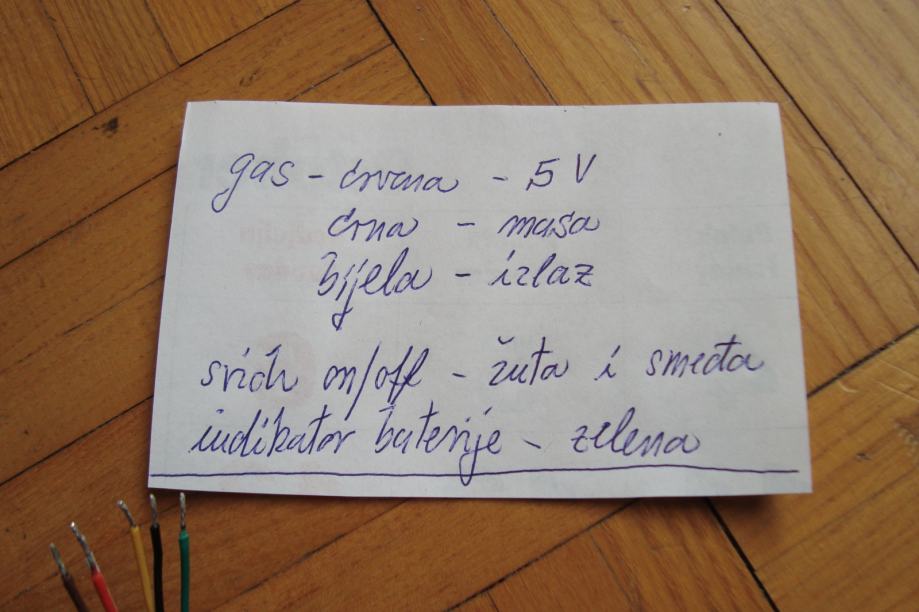 gas - crvena - 5 V
crna - masa
bijela - izlaz
svich on/off - žuta i smeđa
indikator baterije - zelena